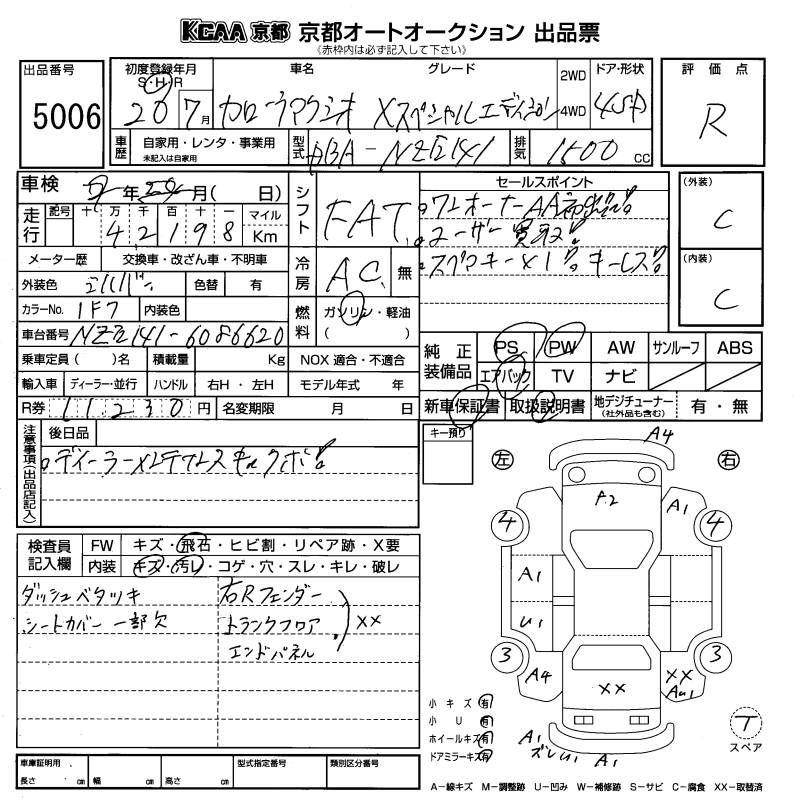 KCAA 京都 京都オートオークション 出品票
(赤枠内は必ず記入して下さい)
出品番号
5006
初度登録年月
S・H・R
20 7月
車名
カローラアクシオ
グレード
Xスペシャルエディション
2WD
4WD
ドア・形状
4SD
評価点
R
車歴
自家用・レンタ・事業用
未記入は自家用
型式
DBA-NZE141
排気
1500 cc
車検
年 月( 日)
走行
記号 十 万 千 百 十 一
4 2 1 9 8
マイル
Km
メーター歴 交換車・改ざん車・不明車
外装色 シルバー 色替 有
カラーNo. 1F7 内装色
車台番号 NZE141-6086620
乗車定員 ( )名 積載量 Kg
輸入車 ディーラー・並行 ハンドル 右H・左H
R券 11,230 円 名変期限 月 日
シフト
FAT
冷房
AC 無
燃料
ガソリン・軽油
( )
NOX 適合・不適合
モデル年式 年
セールスポイント
ワンオーナーAA初出品!
ユーザー買取!
スペアキー×1! キーレス!
(外装)
C
(内装)
C
純正装備品
PS PW AW サンルーフ ABS
エアバック TV ナビ
新車保証書 取扱説明書 地デジチューナー (社外品も含む) 有・無
注意事項(出品店記入)
後日品
キー預り
左 右
A4
A.2
A1
4 4
A1
U1
3 3
A4
XX
XX
AU1
A1
A1
検査員記入欄
FW キズ・飛石・ヒビ割・リペア跡・X要
内装 キズ・汚レ・コゲ・穴・スレ・キレ・破レ
ダッシュベタツキ
シートカバー 一部欠
右Rフェンダー
トランクフロア
エンドパネル
XX
小キズ 有
小U 有
ホイールキズ 有
ドアミラーキズ 有
T
スペア
車庫証明用
長さ cm 幅 cm 高さ cm
型式指定番号
類別区分番号
A-線キズ M-調整跡 U-凹み W-補修跡 S-サビ C-腐食 XX-取替済